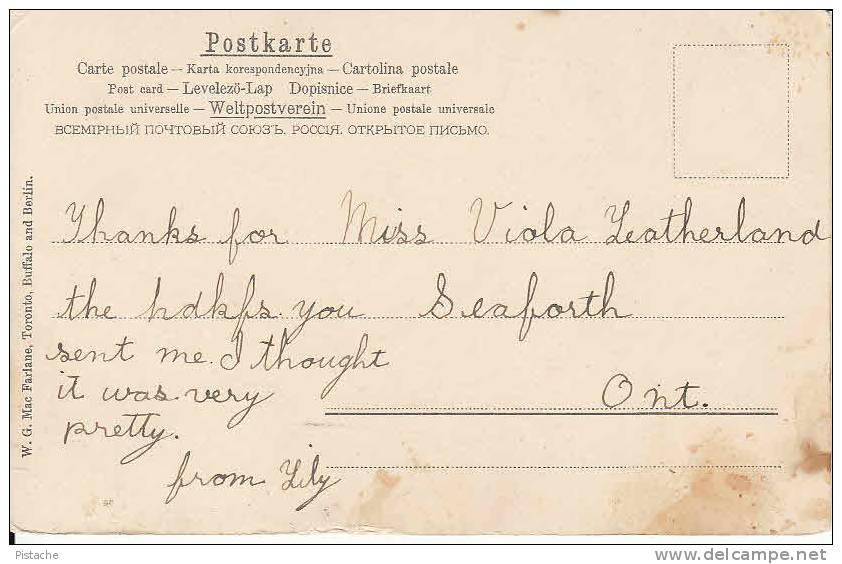 Postkarte
Carte postale — Karta korespondencyjna — Cartolina postale
Post card — Levelezö-Lap Dopisnice — Briefkaart
Union postale universelle — Weltpostverein — Unione postale universale
ВСЕМIРНЫЙ ПОЧТОВЫЙ СОЮЗЪ. РОССIЯ. ОТКРЫТОЕ ПИСЬМО.
W. G. Mac Farlane, Toronto, Buffalo and Berlin.
Thanks for
the hdkfs. you
sent me. I thought
it was very
pretty.
from Lily
Miss Viola Leatherland
Seaforth
Ont.
Pistache
www.delcampe.net